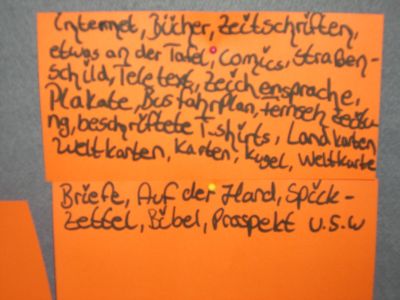 Internet, Bücher, Zeitschriften,
etwas an der Tafel, Comics, Straßen-
schild, Teletext, Zeichensprache,
Plakate, Busfahrplan, Fernseh zeitu
ng, beschriftete T-shirts, Landkarten
Weltkarten, Karten, Kugel, Weltkarte
Briefe, Auf der Hand, Spick-
zettel, Bibel, Prospekt u.s.w